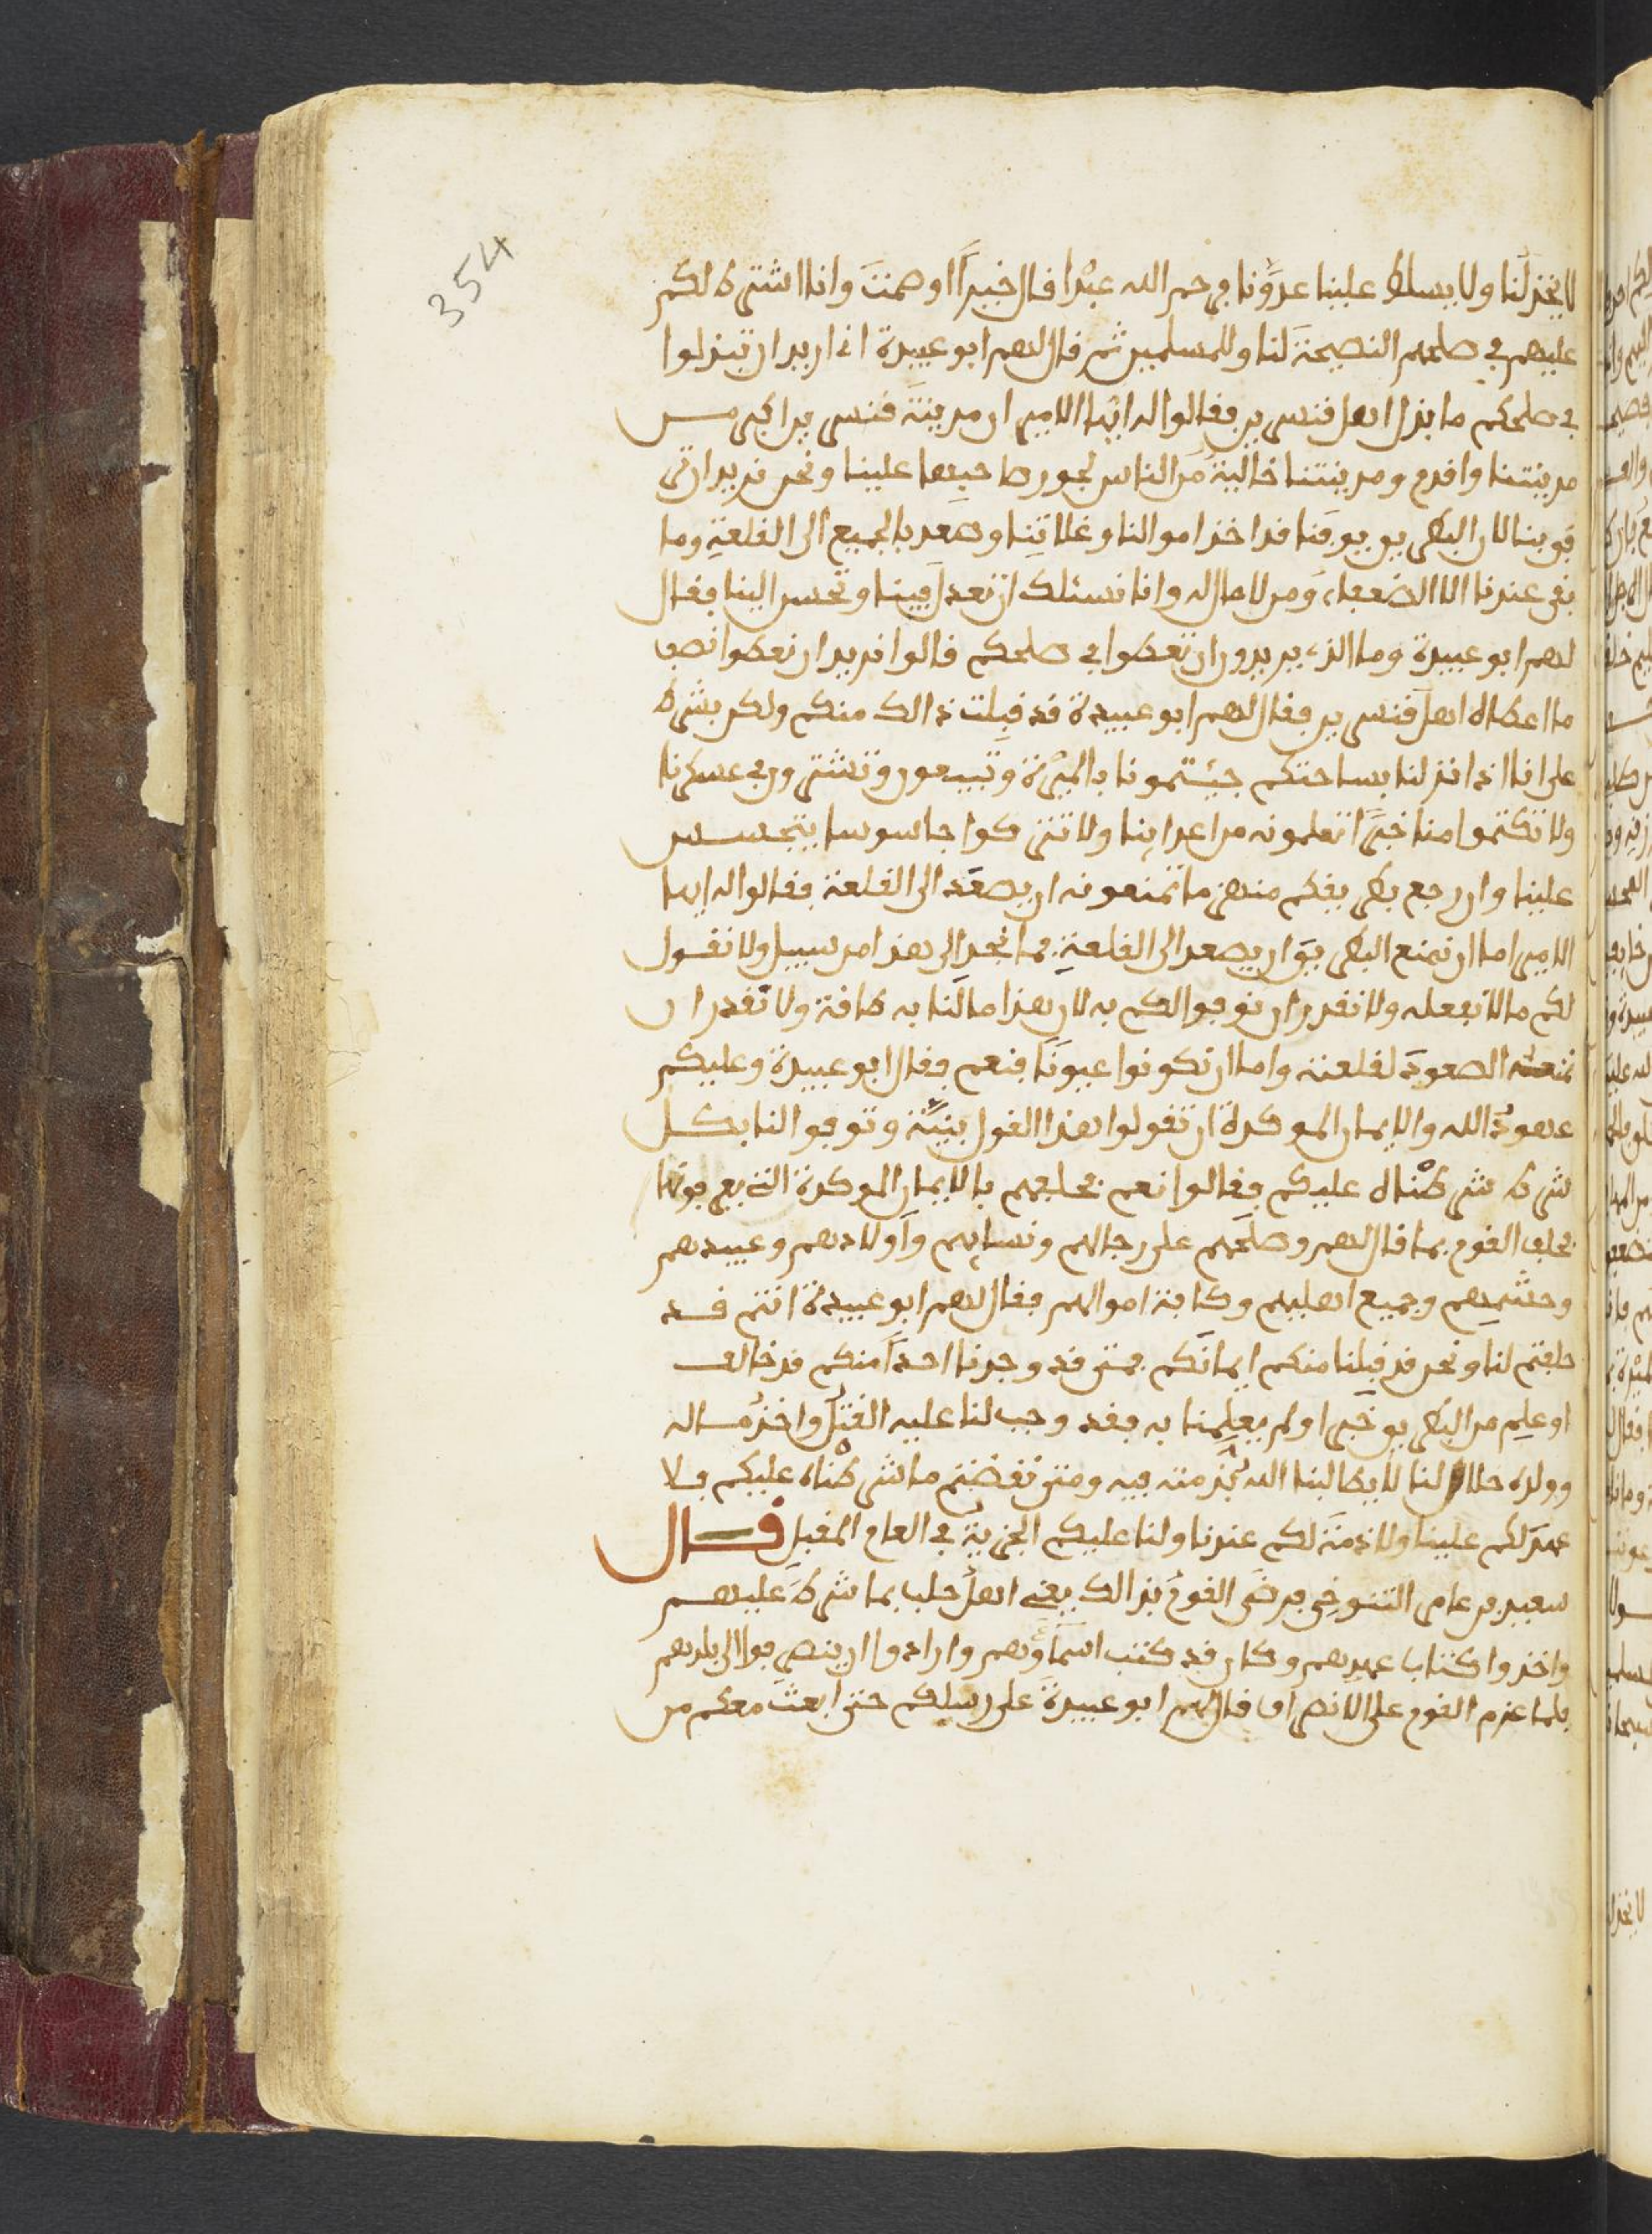 354
لا يخذلنا ولا يسلط علينا عدونا فرحم الله عبدا قال خيرا او صمت وانا اشترط لكم
عليهم في صلحهم النصيحة لنا وللمسلمين ثم قال لهم ابو عبيدة اني اريد ان تبذلوا
في صلحكم ما بذل اهل قنسرين فقالوا له ايها الامير ان مدينة قنسرين اكبر من
مدينتنا واقدم ومدينتنا خالية من الناس لجور صاحبها علينا ونحن نريد ان
قوينا لان البطريق يوقنا قد اخذ اموالنا وغلاتنا وصعد بالجميع الى القلعة وما
بقى عندنا الا الضعفاء ومن لا مال له وانا نسئلك ان تعدل فينا وتحسن الينا فقال
لهم ابو عبيدة وما الذي تريدون ان تعطوا في صلحكم قالوا نريد ان نعطوا نصف
ما اعطاه اهل قنسرين فقال لهم ابو عبيدة قد قبلت ذالك منكم ولكن بشرط
على انا اذا نزلنا بساحتكم جيئتمونا بالميرة وتبيعون وتشترون في عسكرنا
ولا تكتموا منا خبرا تعلمونه من اعداينا ولا تتركوا جاسوسا يتجسس
علينا وان رجع بطريقكم منهزما تمنعونه ان يصعد الى القلعة فقالوا له ايها
الامير اما ان نمنع البطريق ان يصعد الى القلعة فما نجد الى هذا من سبيل ولا نقول
لكم ما لا نفعله ولا نقدر ان نوفوا لكم به لان هذا ما لنا به طاقة ولا نقدر ان
نمنعه الصعود لقلعته واما ان نكونوا عيونا فنعم فقال ابو عبيدة وعليكم
عهود الله والايمان الموكدة ان تقولوا هذا القول بنية وتوفوا لنا بكل
شرط شرطناه عليكم فقالوا نعم فحلفهم بالايمان الموكدة التي يعرفونها
فحلف القوم بما قال لهم وصلحهم على رجالهم ونسايهم واولادهم وعبيدهم
وحشمهم وجميع اهليهم وكافة اموالهم فقال لهم ابو عبيدة انتم قد
حلفتم لنا ونحن قد قبلنا منكم ايمانكم فمتى قد وجدنا احدا منكم قد خالف
او علم من البطريق خبرا ولم يعلمنا به فقد وجب لنا عليه القتل واخذ ماله
وولده حلال لنا لا يطالبنا الله بذمته فيه ومتى نقضتم ما شرطناه عليكم فلا
عهد لكم علينا ولا ذمة لكم عندنا ولنا عليكم الجزية في العام المقبل قال
سعيد بن عامر التنوخي فرضى القوم بذالك يعني اهل حلب بما شرط عليهم
واخذوا كتاب عهدهم وكان قد كتب اسماؤهم وارادوا ان ينصرفوا الى بلدهم
فلما عزم القوم على الانصراف قال لهم ابو عبيدة على رسلكم حتى ابعث معكم من